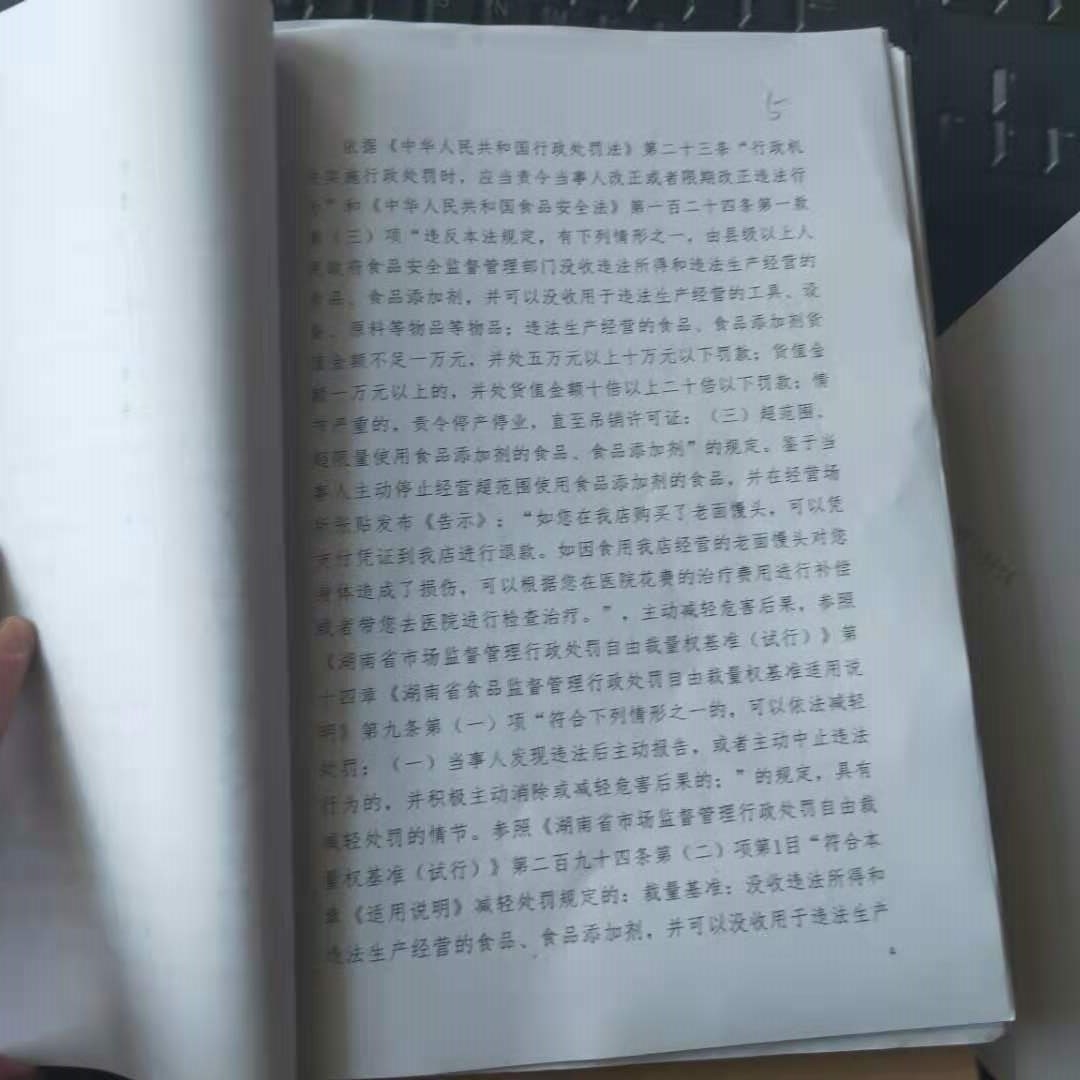 5
依据《中华人民共和国行政处罚法》第二十三条“行政机
实施行政处罚时，应当责令当事人改正或者限期改正违法行
”和《中华人民共和国食品安全法》第一百二十四条第一款
（三）项“违反本法规定，有下列情形之一，由县级以上人
政府食品安全监督管理部门没收违法所得和违法生产经营的
品、食品添加剂，并可以没收用于违法生产经营的工具、设
、原料等物品等物品；违法生产经营的食品、食品添加剂货
值金额不足一万元，并处五万元以上十万元以下罚款；货值金
额一万元以上的，并处货值金额十倍以上二十倍以下罚款；情
严重的，责令停产停业，直至吊销许可证：（三）超范围、
超限量使用食品添加剂的食品、食品添加剂”的规定。鉴于当
事人主动停止经营超范围使用食品添加剂的食品，并在经营场
张贴发布《告示》：“如您在我店购买了老面馒头，可以凭
支付凭证到我店进行退款。如因食用我店经营的老面馒头对您
身体造成了损伤，可以根据您在医院花费的治疗费用进行补偿
或者带您去医院进行检查治疗。”，主动减轻危害后果，参照
《湖南省市场监督管理行政处罚自由裁量权基准（试行）》第
十四章《湖南省食品监督管理行政处罚自由裁量权基准适用说
明》第九条第（一）项“符合下列情形之一的，可以依法减轻
处罚：（一）当事人发现违法后主动报告，或者主动中止违法
行为的，并积极主动消除或减轻危害后果的；”的规定，具有
减轻处罚的情节。参照《湖南省市场监督管理行政处罚自由裁
量权基准（试行）》第二百九十四条第（二）项第1目“符合本
章《适用说明》减轻处罚规定的：裁量基准：没收违法所得和
违法生产经营的食品、食品添加剂，并可以没收用于违法生产